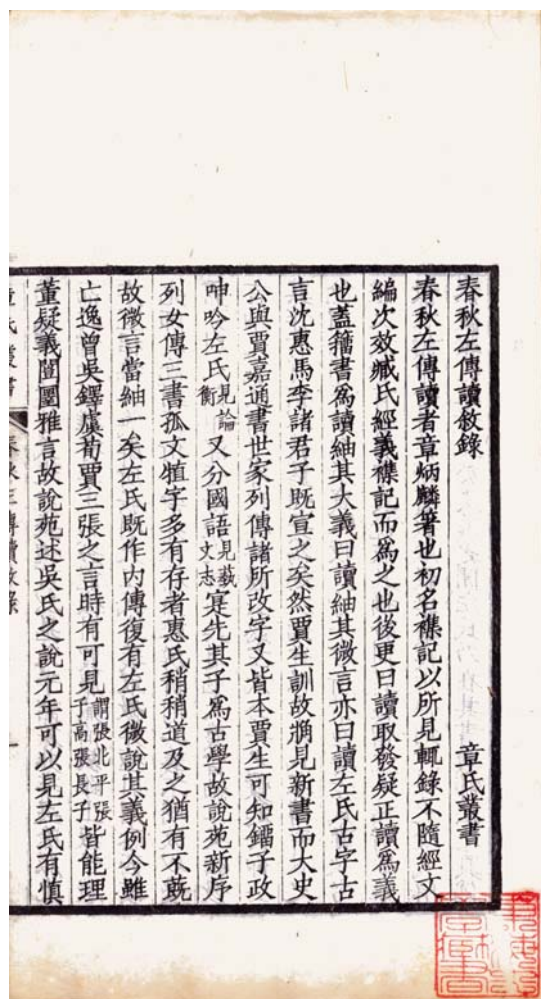 春秋左傳讀敘錄 章氏叢書
春秋左傳讀者章炳麟箸也初名襍記以所見輒錄不隨經文
編次效臧氏經義襍記而爲之也後更曰讀取發疑正讀爲義
也蓋籀書爲讀紬其大義曰讀紬其微言亦曰讀左氏古字古
言沈惠馬李諸君子既宣之矣然賈生訓故觕見新書而大史
公與賈嘉通書世家列傳諸所改字又皆本賈生可知鐂子政
呻吟左氏見論衡又分國語見藝文志寔先其子爲古學故說苑新序
列女傳三書孤文犆字多有存者惠氏稍稍道及之猶有不蔇
故微言當紬一矣左氏既作內傳復有左氏微說其義例今雖
亡逸曾吳鐸虞荀賈三張之言時有可見謂張北平張子高張長子皆能理
董疑義闓圛雅言故說苑述吳氏之說元年可以見左氏有慎